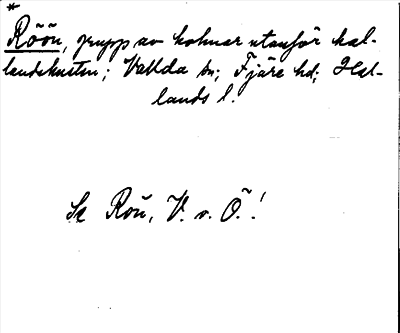 *
Rõõn, grupp av holmar utanför hal-
landskusten; Vallda sn; Fjäre hd; Hal-
lands l.
Se Roñ, V. o. Ö.!